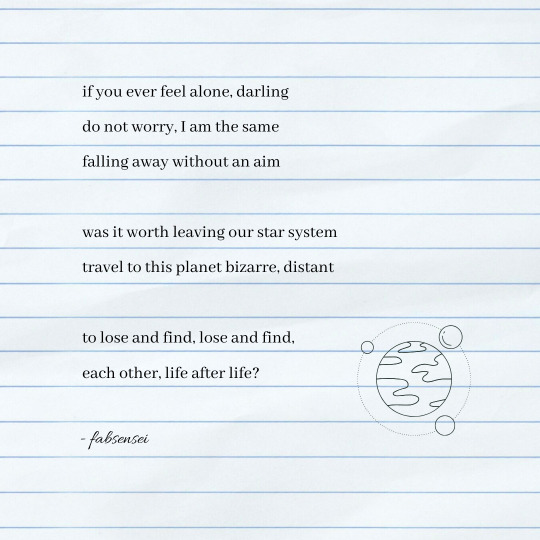 if you ever feel alone, darling
do not worry, I am the same
falling away without an aim
was it worth leaving our star system
travel to this planet bizarre, distant
to lose and find, lose and find,
each other, life after life?
- fabsensei